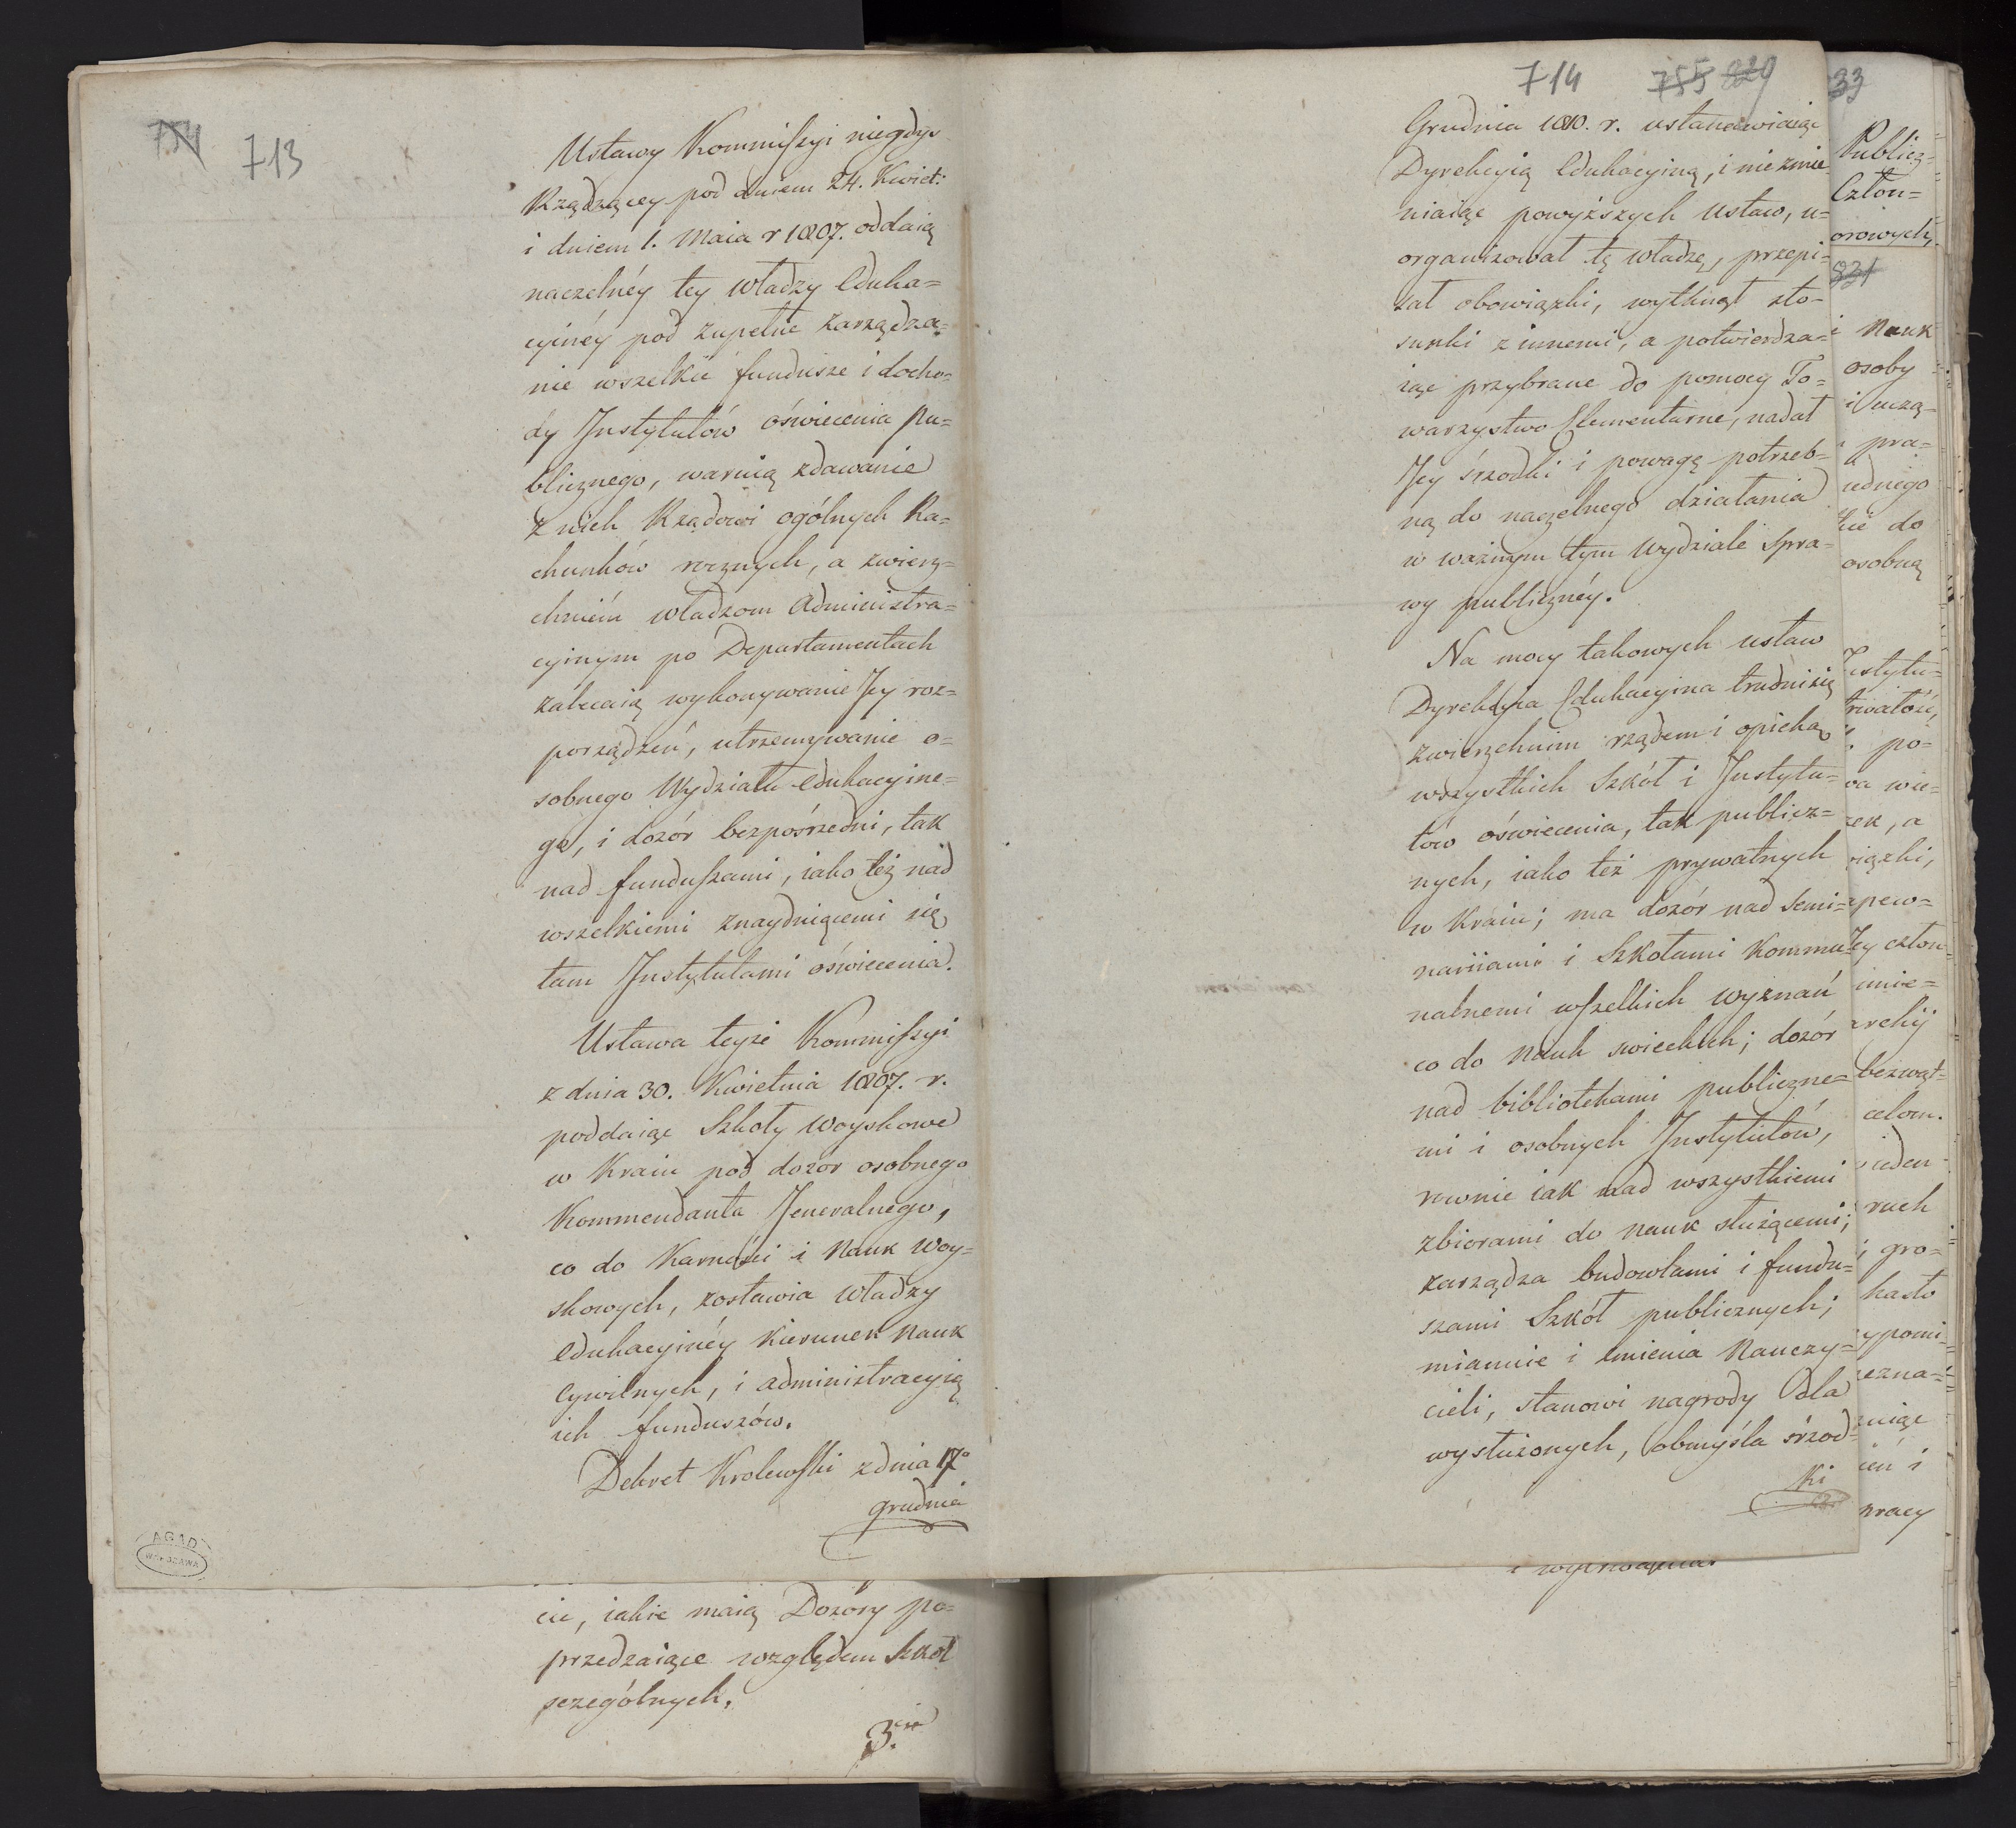 754 713
Ustawy Kommissyi niegdys
Rządzącey pod dniem 24. Kwiet:
i dniem 1. Maia r 1807. oddaią
naczelnéy tey Władzy Eduka=
cyinéy pod zupełne zarządza=
nie wszelkie fundusze i docho=
dy Instytutów oświecenia pu=
blicznego, waruią zdawanie
z nich Rządowi ogólnych Ra=
chunków rocznych, a zwierz=
chniém władzom Administra=
cyinym po Departamentach
zalecaią wykonywanie Jey roz=
porządzeń, utrzemywanie o=
sobnego Wydziału Edukacyine=
go, i dozór bezpośrzedni, tak
nad funduszami, iako też nad
wszelkiemi znayduiącemi się
tam Instytutami oświecenia.
Ustawa teyże Kommissyi
z dnia 30. Kwietnia 1807. r.
poddaiąc Szkoły Woyskowe
w Kraiu pod dozor osobnego
Kommendanta Jeneralnego,
co do Karności i Nauk Woy=
skowych, zostawia Władzy
Edukacyinéy Kierunek Nauk
Cywilnych, i administracyią
ich funduszów.
Dekret Krolewski z dnia 17°
grudnia
AGAD
WARSZAWA
cie, iakie maią Dozory po=
przedzaiące względem Szkół
szczególnych.
3.cie
714 755 829
Grudnia 1810. r. ustanawiaiąc
Dyrekcyią Edukacyiną, i niezmie=
niaiąc powyższych Ustaw, u=
organizował tę władzę, przepi=
sał obowiązki, wytknął sto=
sunki z innemi, a potwierdza=
iąc przybrane do pomocy To=
warzystwo Elementarne, nadał
Jey śrzodki i powagę potrzeb=
ną do naczelnego działania
w ważnym tym Wydziale Spra=
wy publicznéy.
Na mocy takowych ustaw
Dyrekcyia Edukacyina trudni się
zwierzchnim rządem i opieką
wszystkich Szkół i Instytu=
tów oświecenia, tak publicz=
nych, iako też prywatnych
w Kraiu; ma dozór nad Semi=
nariiami i Szkołami Kommu=
nalnemi wszelkich wyznań
co do Nauk swieckich; dozór
nad bibliotekami publiczne=
mi i osobnych Instytutów,
rownie iak nad wszystkiemi
zbiorami do nauk służącemi;
zarządza budowlami i fundu=
szami Szkół publicznych;
mianuie i zmienia Nauczy=
cieli, stanowi nagrody dla
wysłużonych, obmyśla śrzod=
ki
33
Publicz=
Człon=
orowych,
831
i Nauk
osoby
i uczą=
pra=
ednego
kie do
osobną
Instytu=
trwałość,
po=
wa wie=
zek, a
wiązki,
zpew=
Jey człon=
imie=
archij
bezwąt=
celom.
ieden=
ruch
gro=
hasło
ypomi=
ezna=
niąc
ień i
pracy